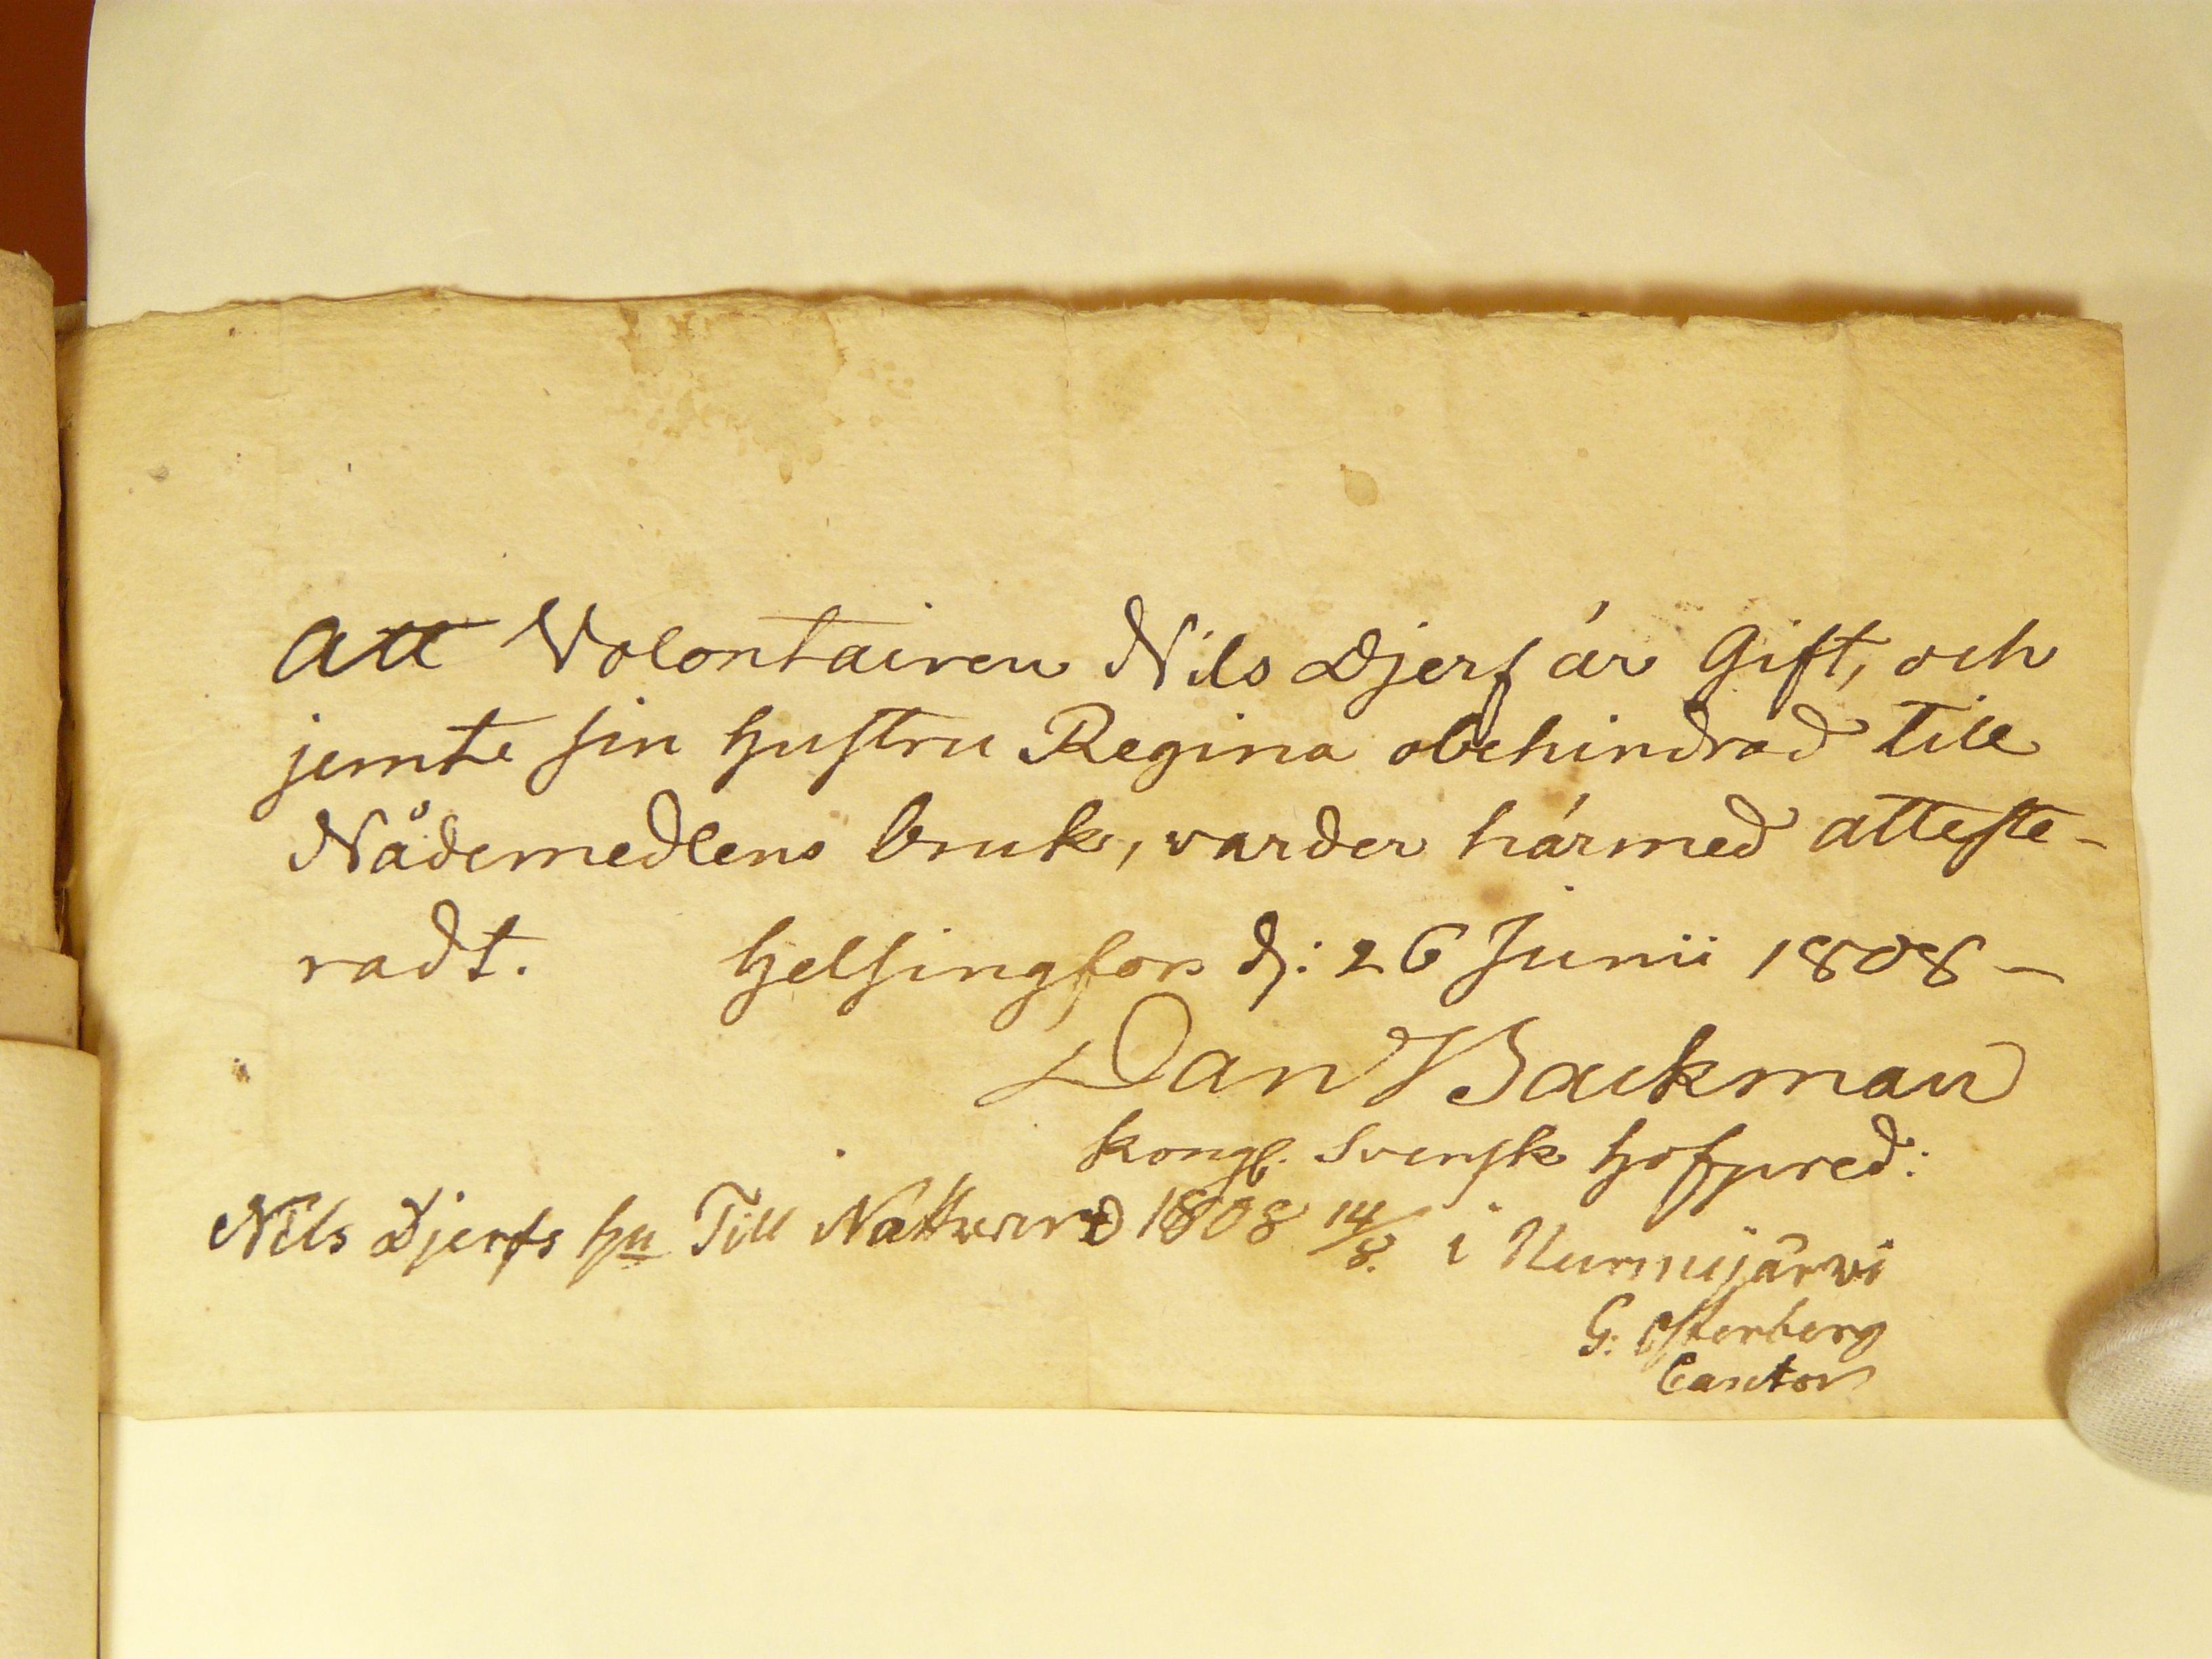 Att Volontairen Nils Djerf är Gift, och
jemte sin hustru Regina obehindrad till
Nådemedlens bruk, varder härmed atteste-
radt. Helsingfors d: 26 Junii 1808 -
Dan Backman
Kongl. Svensk Hofpred:
Nils Djerfs hu Till Nattward 1808 14/8. i Nurmijärwi
G: Österberg
Cantor